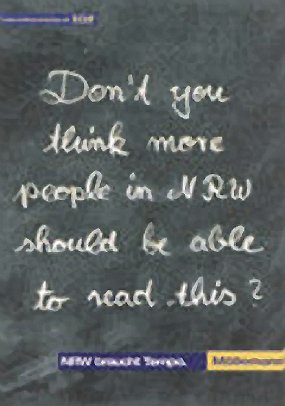 Don't you
think more
people in NRW
should be able
to read this?
NRW braucht Tempo. Möllemann